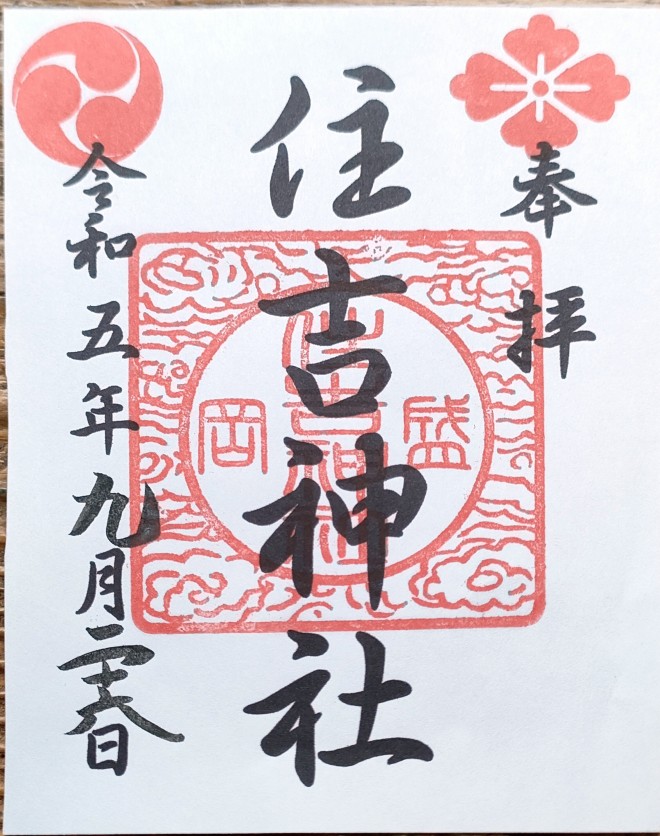 奉拝
住吉神社
盛岡
住吉神社
令和五年九月二十八日